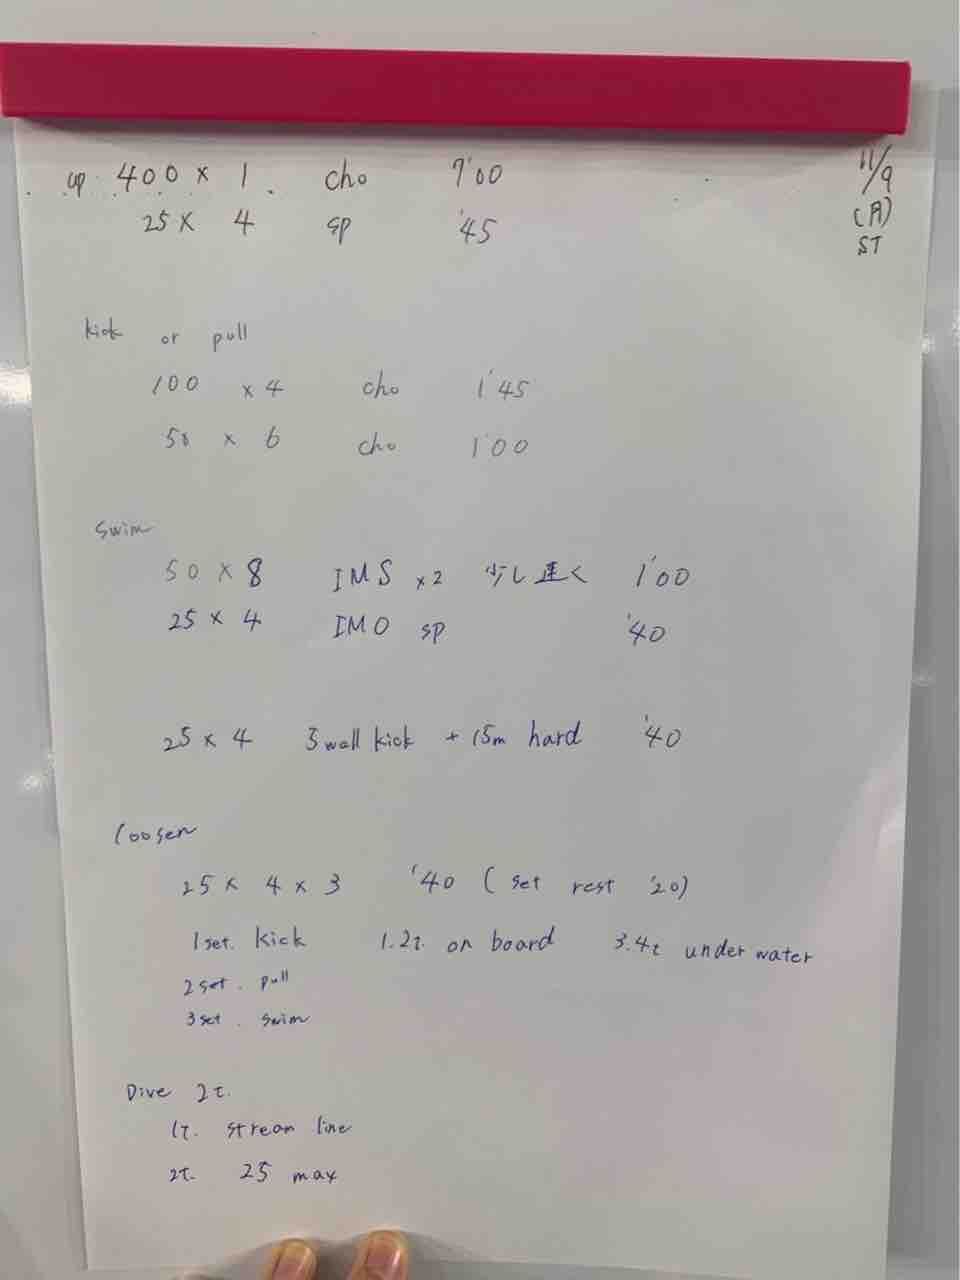 up 400 × 1 cho 7'00
25 × 4 sp '45
11/9
(A)
ST
kick or pull
100 × 4 cho 1'45
50 × 6 cho 1'00
swim
50 × 8 IMS ×2 少し速く 1'00
25 × 4 IMO sp '40
25 × 4 5 wall kick + 15m hard '40
loosen
25 × 4 × 3 '40 (set rest '20)
1set. kick 1.2t. on board 3.4t under water
2set. pull
3set. swim
Dive 2t.
1t. stream line
2t. 25 max